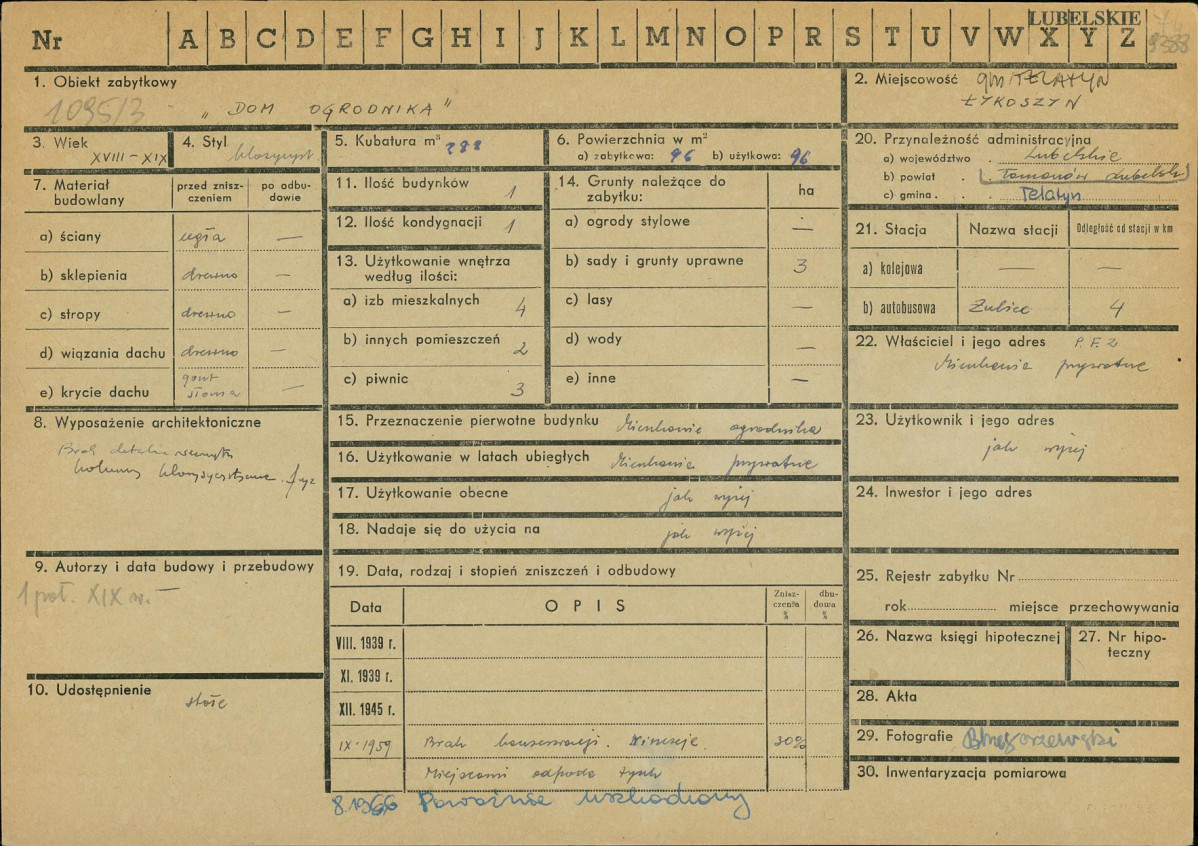 LUBELSKIE
Nr A B C D E F G H I J K L M N O P R S T U V W X Y Z
9388
1. Obiekt zabytkowy
1095/3
„DOM OGRODNIKA"
2. Miejscowość gm TELATYN
ŁYKOSZYN
3. Wiek
XVIII – XIX
4. Styl
klasycyst.
5. Kubatura m³ 288
6. Powierzchnia w m²
a) zabytkowa: 96 b) użytkowa: 96
20. Przynależność administracyjna
a) województwo . Lubelskie
b) powiat . . (Tomaszów Lubelski)
c) gmina . . Telatyn
7. Materiał budowlany
przed zniszczeniem
po odbudowie
a) ściany cegła —
b) sklepienia drewno —
c) stropy drewno —
d) wiązania dachu drewno —
e) krycie dachu gont słoma —
11. Ilość budynków 1
12. Ilość kondygnacji 1
13. Użytkowanie wnętrza
według ilości:
a) izb mieszkalnych 4
b) innych pomieszczeń 2
c) piwnic 3
14. Grunty należące do
zabytku: ha
a) ogrody stylowe —
b) sady i grunty uprawne 3
c) lasy —
d) wody —
e) inne —
21. Stacja Nazwa stacji Odległość od stacji w km
a) kolejowa — —
b) autobusowa Żulice 4
22. Właściciel i jego adres P.F.Z
Mieszkanie prywatne
8. Wyposażenie architektoniczne
Brak detalu zewnątrz
kolumny klasycystyczne. fryz
15. Przeznaczenie pierwotne budynku Mieszkanie ogrodnika
16. Użytkowanie w latach ubiegłych Mieszkanie prywatne
17. Użytkowanie obecne jak wyżej
18. Nadaje się do użycia na jak wyżej
23. Użytkownik i jego adres
jak wyżej
24. Inwestor i jego adres
9. Autorzy i data budowy i przebudowy
1 poł. XIX w. —
19. Data, rodzaj i stopień zniszczeń i odbudowy
Data OPIS Zniszczenia % dbudowa %
VIII. 1939 r.
XI. 1939 r.
XII. 1945 r.
IX. 1959 Brak konserwacji. Niszczeje. 30%
Miejscami odpada tynk
8.1966 Poważnie uszkodzony
25. Rejestr zabytku Nr
rok miejsce przechowywania
26. Nazwa księgi hipotecznej
27. Nr hipoteczny
10. Udostępnienie
stałe
28. Akta
29. Fotografie
30. Inwentaryzacja pomiarowa